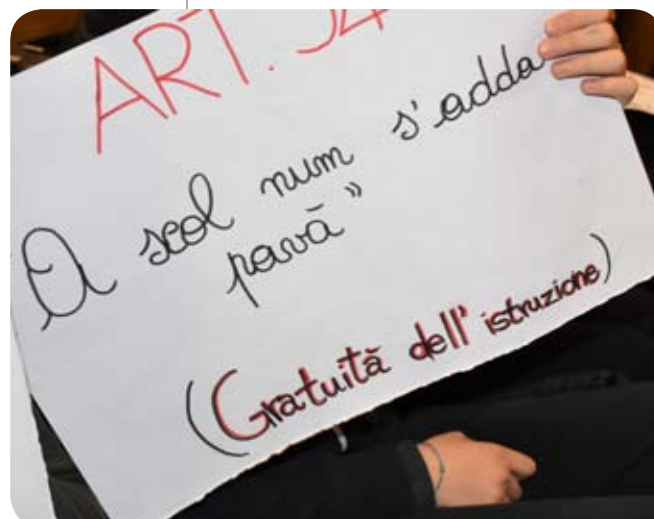 ART. 34
A scol num s'adda
pavā"
(Gratuitā dell' istruzione)